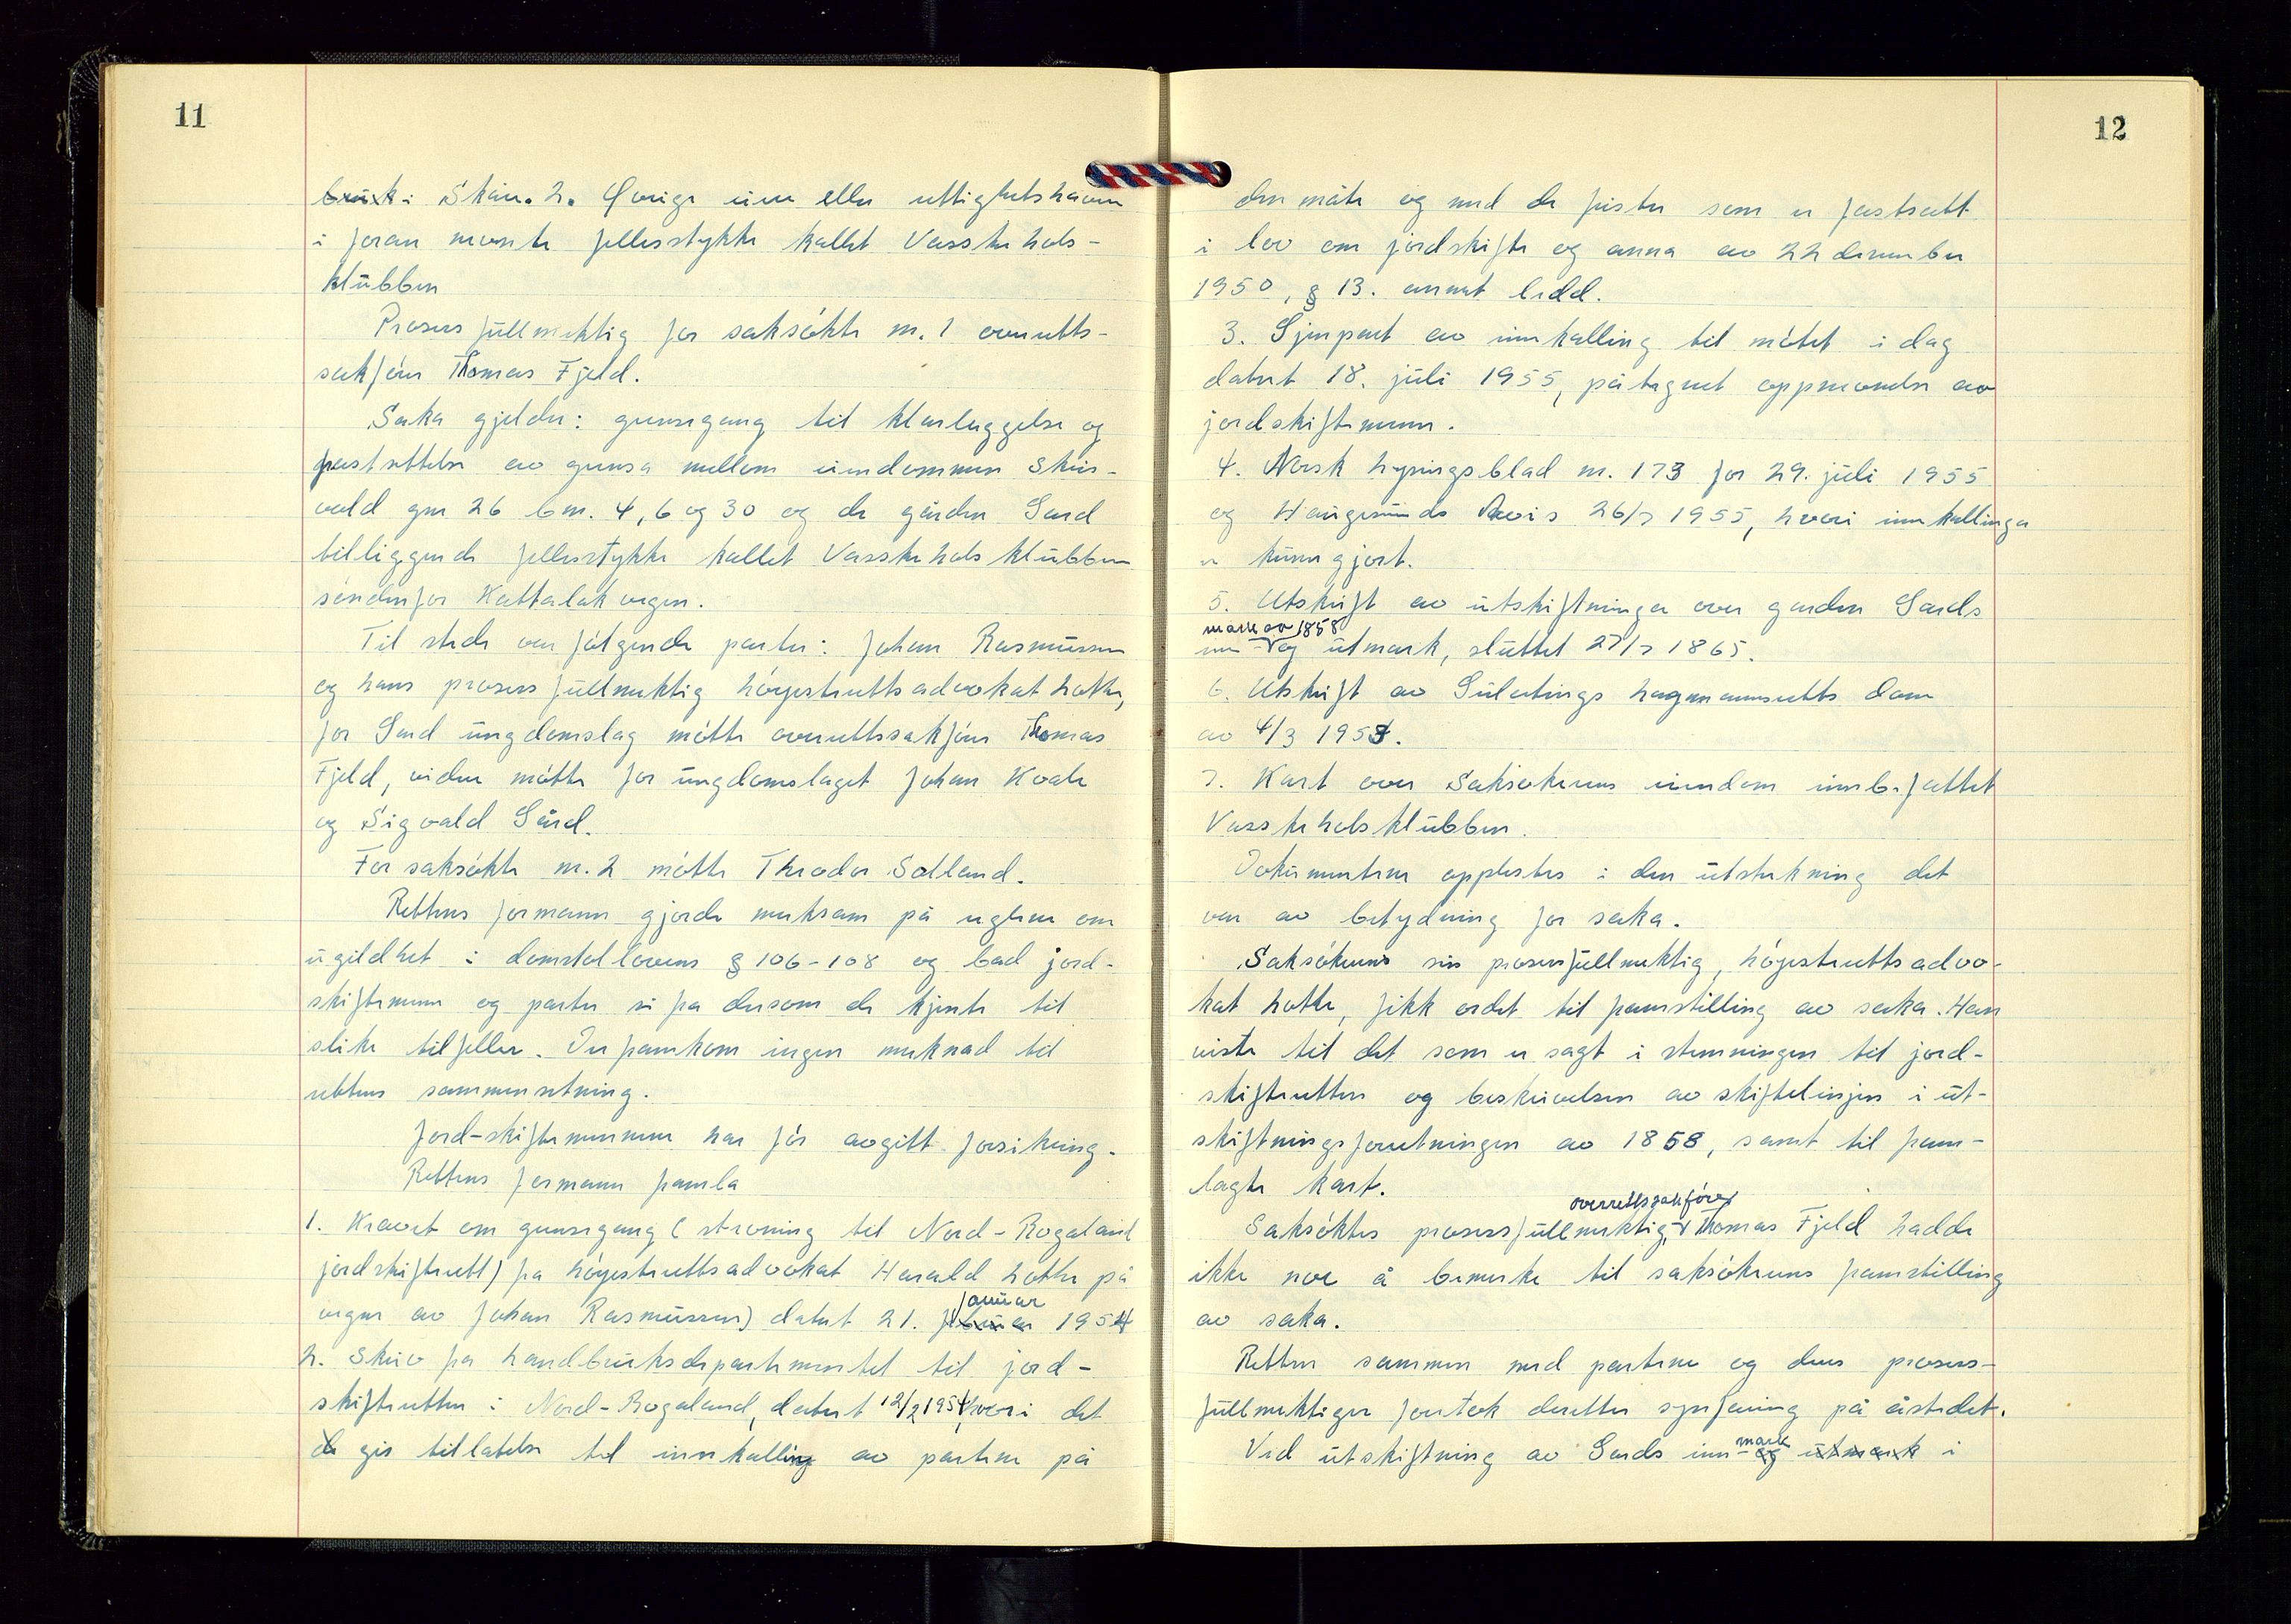 11
bruk i Skåre. 2. Øvrige eiere eller rettighetshavere
i foran nevnte fellesstykke kallet Vasstehals-
klubben
Prosessfullmektig for saksøkte nr. 1 overretts-
sakfører Thomas Fjeld.
Saka gjelder: grensegang til klarleggelse og
fastsettelse av grensa mellom eiendommen Skeis-
vold gnr 26 bnr. 4, 6 og 30 og de gården Sørd
tilliggende fellesstykke kallet Vasstehalsklubben
søndenfor Kattalakvegen.
Til stede var følgende parter: Johan Rasmussen
og hans prosessfullmektig høyesterettsadvokat Lothe,
for Sørd ungdomslag møtte overrettssakfører Thomas
Fjeld, videre møtte for ungdomslaget Johan Kvale
og Sigvald Sørd.
For saksøkte nr. 2 møtte Theodor Solland.
Rettens formann gjorde merksam på reglene om
ugildhet i domstollovens § 106-108 og bad jord-
skiftemenn og parter si fra dersom de kjente til
slike tilfeller. Der framkom ingen merknad til
rettens sammensetning.
Jord-skiftemennene har før avgitt forsikring.
Rettens formann framla
1. Kravet om grensegang (stevning til Nord-Rogaland
jordskifterett) fra høyesterettsadvokat Harald Lothe på
januar
vegne av Johan Rasmussen) datert 21. februar 1954
2. Skriv fra Landbruksdepartementet til jord-
skifteretten i Nord-Rogaland, datert 12/2 1954, hvori det
de gis tillatelse til innkalling av partene på
12
den måte og med de frister som er fastsatt
i lov om jordskifte og anna av 22 desember
1950, § 13. annet ledd.
3. Gjenpart av innkalling til møtet i dag
datert 18. juli 1955, påtegnet oppnevnelse av
jordskiftemenn.
4. Norsk Lysingsblad nr. 173 for 29. juli 1955
og Haugesunds Avis 26/7 1955, hvori innkallinga
er kunngjort.
5. Utskrift av utskiftninga over garden Sørds
mark av 1858
inn- og utmark, sluttet 27/7 1865.
6. Utskrift av Gulatings lagmannsretts dom
av 4/3 1953.
7. Kart over Saksøkerens eiendom innb.fattet
Vasstehalsklubben.
Dokumentene opplestes i den utstrekning det
var av betydning for saka.
Saksøkerens sin prosessfullmektig, høyesterettsadvo-
kat Lothe, fikk ordet til framstilling av saka. Han
viste til det som er sagt i stevningen til jord-
skifteretten og beskrivelsen av skiftelinjen i ut-
skiftningsforretningen av 1858, samt til fram-
lagte kart.
overrettssakfører
Saksøktes prosessfullmektig, Thomas Fjeld hadde
ikke noe å bemerke til saksøkerens framstilling
av saka.
Retten sammen med partene og deres prosess-
fullmektiger foretok deretter synfaring på åstedet.
mark
Ved utskiftning av Sørds inn- og utmark i